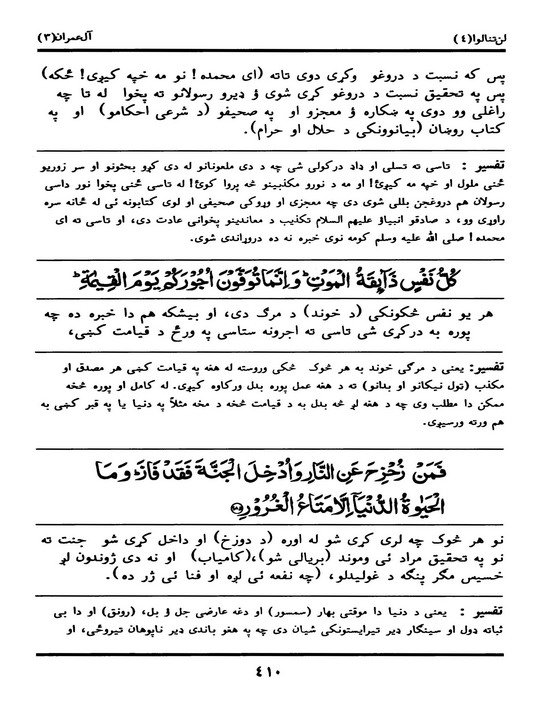 لن تنالوا(٤) آل عمران(٣)
پس که نسبت د دروغو وکړی دوی تاته (ای محمده! نو مه خپه کیږی! ځکه)
پس په تحقیق نسبت د دروغو کړی شوی ؤ ډیرو رسولانو ته پخوا له تا چه
راغلی وو دوی په ښکاره ؤ معجزو او په صحیفو (د شرعی احکامو) او په
کتاب روښان (بیانوونکی د حلال او حرام).
تفسیر : تاسی ته تسلی او ډاډ درکولی شی چه د دی ملعونانو له دی کړو بحثونو او سر زوریو
ځنی ملول او خپه مه کیږئ! او مه د نورو مکذبینو څه پروا کوئ! له تاسی ځنی پخوا نور داسی
رسولان هم دروغجن بللی شوی دی چه معجزی او وړوکی صحیفی او لوی کتابونه ئی له ځانه سره
راوړی وو، د صادقو انبیاؤ علیهم السلام تکذیب د معاندینو پخوانی عادت دی، او تاسی ته ای
محمده! صلی الله علیه وسلم کومه نوی خبره نه ده دروړاندی شوی.
كُلُّ نَفْسٍ ذَآئِقَةُ الْمَوْتِ ؕ وَاِنَّمَا تُوَفَّوْنَ اُجُوْرَكُمْ يَوْمَ الْقِيٰمَةِ ؕ
هر یو نفس څکونکی (د خوند) د مرګ دی، او بیشکه هم دا خبره ده چه
پوره به درکړی شی تاسی ته اجرونه ستاسی په ورځ د قیامت کښی،
تفسیر: یعنی د مرګی خوند به هر څوک څکی وروسته له هغه په قیامت کښی هر مصدق او
مکذب (ټول نیکانو او بدانو) ته د هغه عمل پوره بدل ورکاوه کیږی. له کامل او پوره څخه
ممکن دا مطلب وی چه د هغه لږ څه بدل به د قیامت څخه د مخه مثلاً په دنیا یا په قبر کښی به
هم ورته ورسیږی.
فَمَنْ زُحْزِحَ عَنِ النَّارِ وَاُدْخِلَ الْجَنَّةَ فَقَدْ فَازَ ؕ وَمَا
الْحَيٰوةُ الدُّنْيَآ اِلَّا مَتَاعُ الْغُرُوْرِ ﴿۱۸۵﴾
نو هر څوک چه لری کړی شو له اوره (د دوزخ) او داخل کړی شو جنت ته
نو په تحقیق مراد ئی وموند (بریالی شو)،(کامیاب) او نه دی ژوندون لږ
خسیس مګر پنګه د غولیدلو، (چه نفعه ئی لږه او فنا ئی ژر ده).
تفسیر : یعنی د دنیا دا موقتی بهار (سمسور) او دغه عارضی جل ؤ بل، (رونق) او دا بی
ثباته ډول او سینګار ډیر تیرایستونکی شیان دی چه په هغو باندی ډیر ناپوهان تیروځی، او
٤١٠